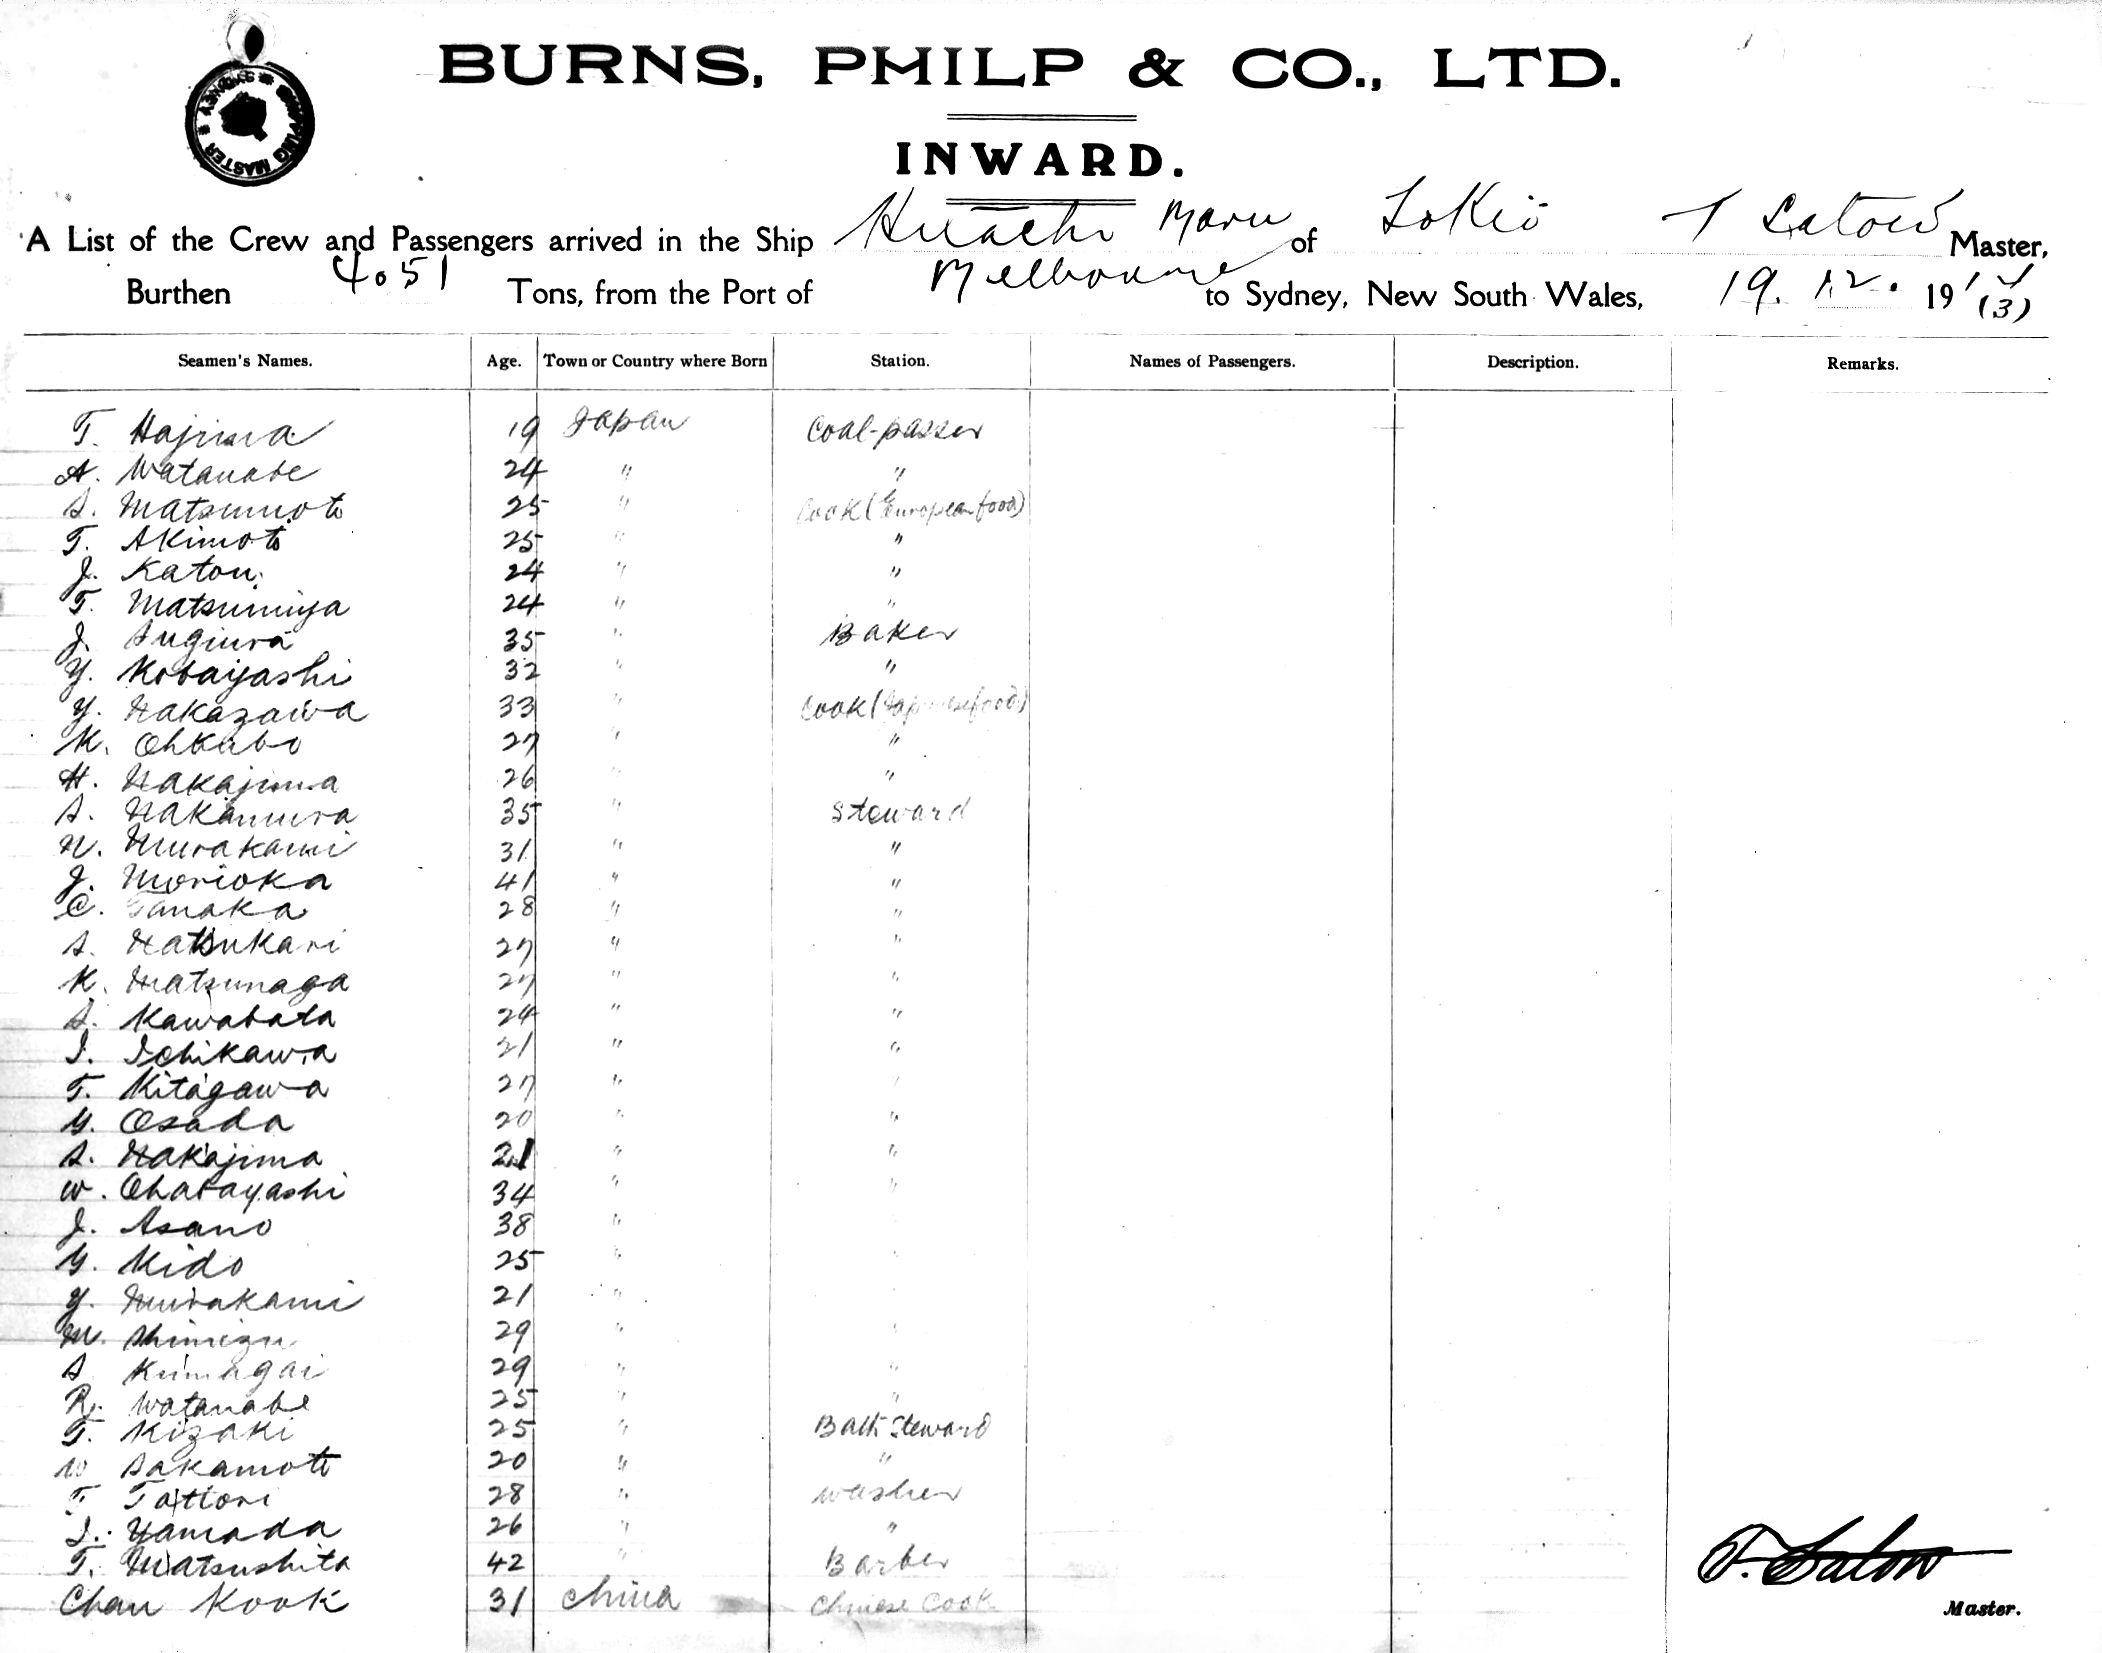 SHIPPING MASTER SYDNEY
BURNS, PHILP & CO., LTD.
INWARD.
A List of the Crew and Passengers arrived in the Ship Hitachi Maru of Tokio T Satow Master,
Burthen 4051 Tons, from the Port of Melbourne to Sydney, New South Wales, 19. 12. 191 (3)
Seamen's Names. Age. Town or Country where Born Station. Names of Passengers. Description. Remarks.
T. Hajima 19 Japan Coal-passer
A. Watanabe 24 " "
S. Matsumoto 25 " Cook (European food)
T. Akimoto 25 " "
J. Katou 24 " "
T. Matsumiya 24 " "
J. Sugiura 35 " Baker
Y. Kobayashi 32 " "
Y. Nakazawa 33 " Cook (Japanese food)
K. Ohkubo 27 " "
H. Nakajima 26 " "
S. Nakamura 35 " Steward
N. Murakami 31 " "
J. Morioka 41 " "
C. Tanaka 28 " "
S. Hatsukari 27 " "
K. Matsunaga 27 " "
S. Kawabata 24 " "
I. Ichikawa 21 " "
T. Kitagawa 27 " "
Y. Osada 20 " "
S. Nakajima 21 " "
W. Ohabayashi 34 " "
J. Asano 38 "
Y. Kido 25 " "
Y. Murakami 21 " "
M. Shimizu 29 " "
S Kumagai 29 " "
R. Watanabe 25 " "
T. Kizaki 25 " Bath Steward
Sakamoto 20 " "
T Tattori 28 " washer
I. Yamada 26 " "
T. Matsushita 42 " Barber
Chan Kook 31 China Chinese Cook
T. Satow
Master.